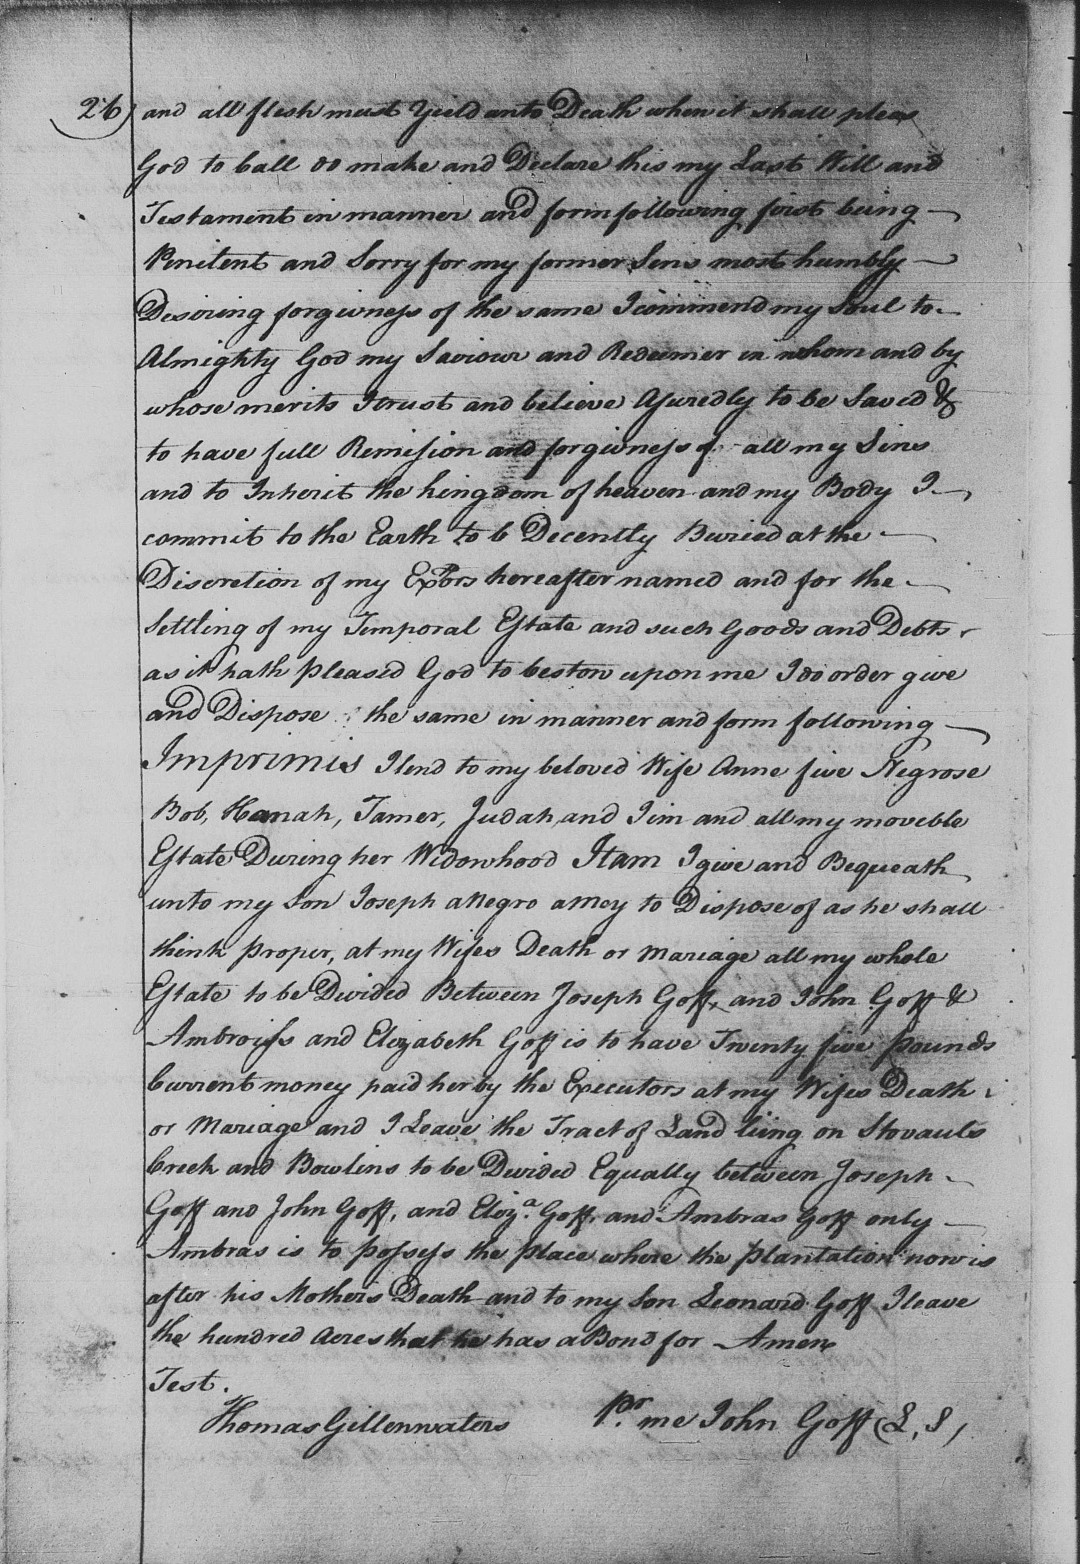 26) and all flesh must Yield unto Death when it shall pleas
God to Call do make and Declare this my Last Will and
Testament in manner and form following first being
Penitent and Sorry for my former Sins most humbly
Desiring forgiveness of the same I commend my Soul to
Almighty God my Saviour and Redeemer in whom and by
whose merits I trust and believe Assuredly to be Saved &
to have full Remission and forgiveness of all my Sins
and to Inherit the kingdom of heaven and my Body I
commit to the Earth to b Decently Buried at the
Discretion of my Extors hereafter named and for the
Settling of my Temporal Estate and such Goods and Debts
as it hath pleased God to bestow upon me I do order give
and Dispose the same in manner and form following
Imprimis I lend to my beloved Wife Anne five Negrose
Bob, Hanah, Tamer, Judah, and Jim and all my moveble
Estate During her Widowhood Itam I give and Bequeath
unto my Son Joseph a Negro to Dispose of as he shall
think proper, at my Wifes Death or Mariage all my whole
Estate to be Divided Between Joseph Goff, and John Goff &
Ambroiss and Elizabeth Goff is to have Twenty five pounds
Current money paid her by the Executors at my Wifes Death
or Mariage and I Leave the Tract of Land lieing on Stovauls
Creek and Bowlins to be Divided Equally between Joseph
Goff and John Goff, and Eliza. Goff, and Ambras Goff only
Ambras is to possess the place where the plantation now is
after his Mothers Death and to my Son Leonard Goff I leave
the hundred Acres that he has a Bond for Amen
Test.
Thomas Gillenwaters Pr. me John Goff (L, S,